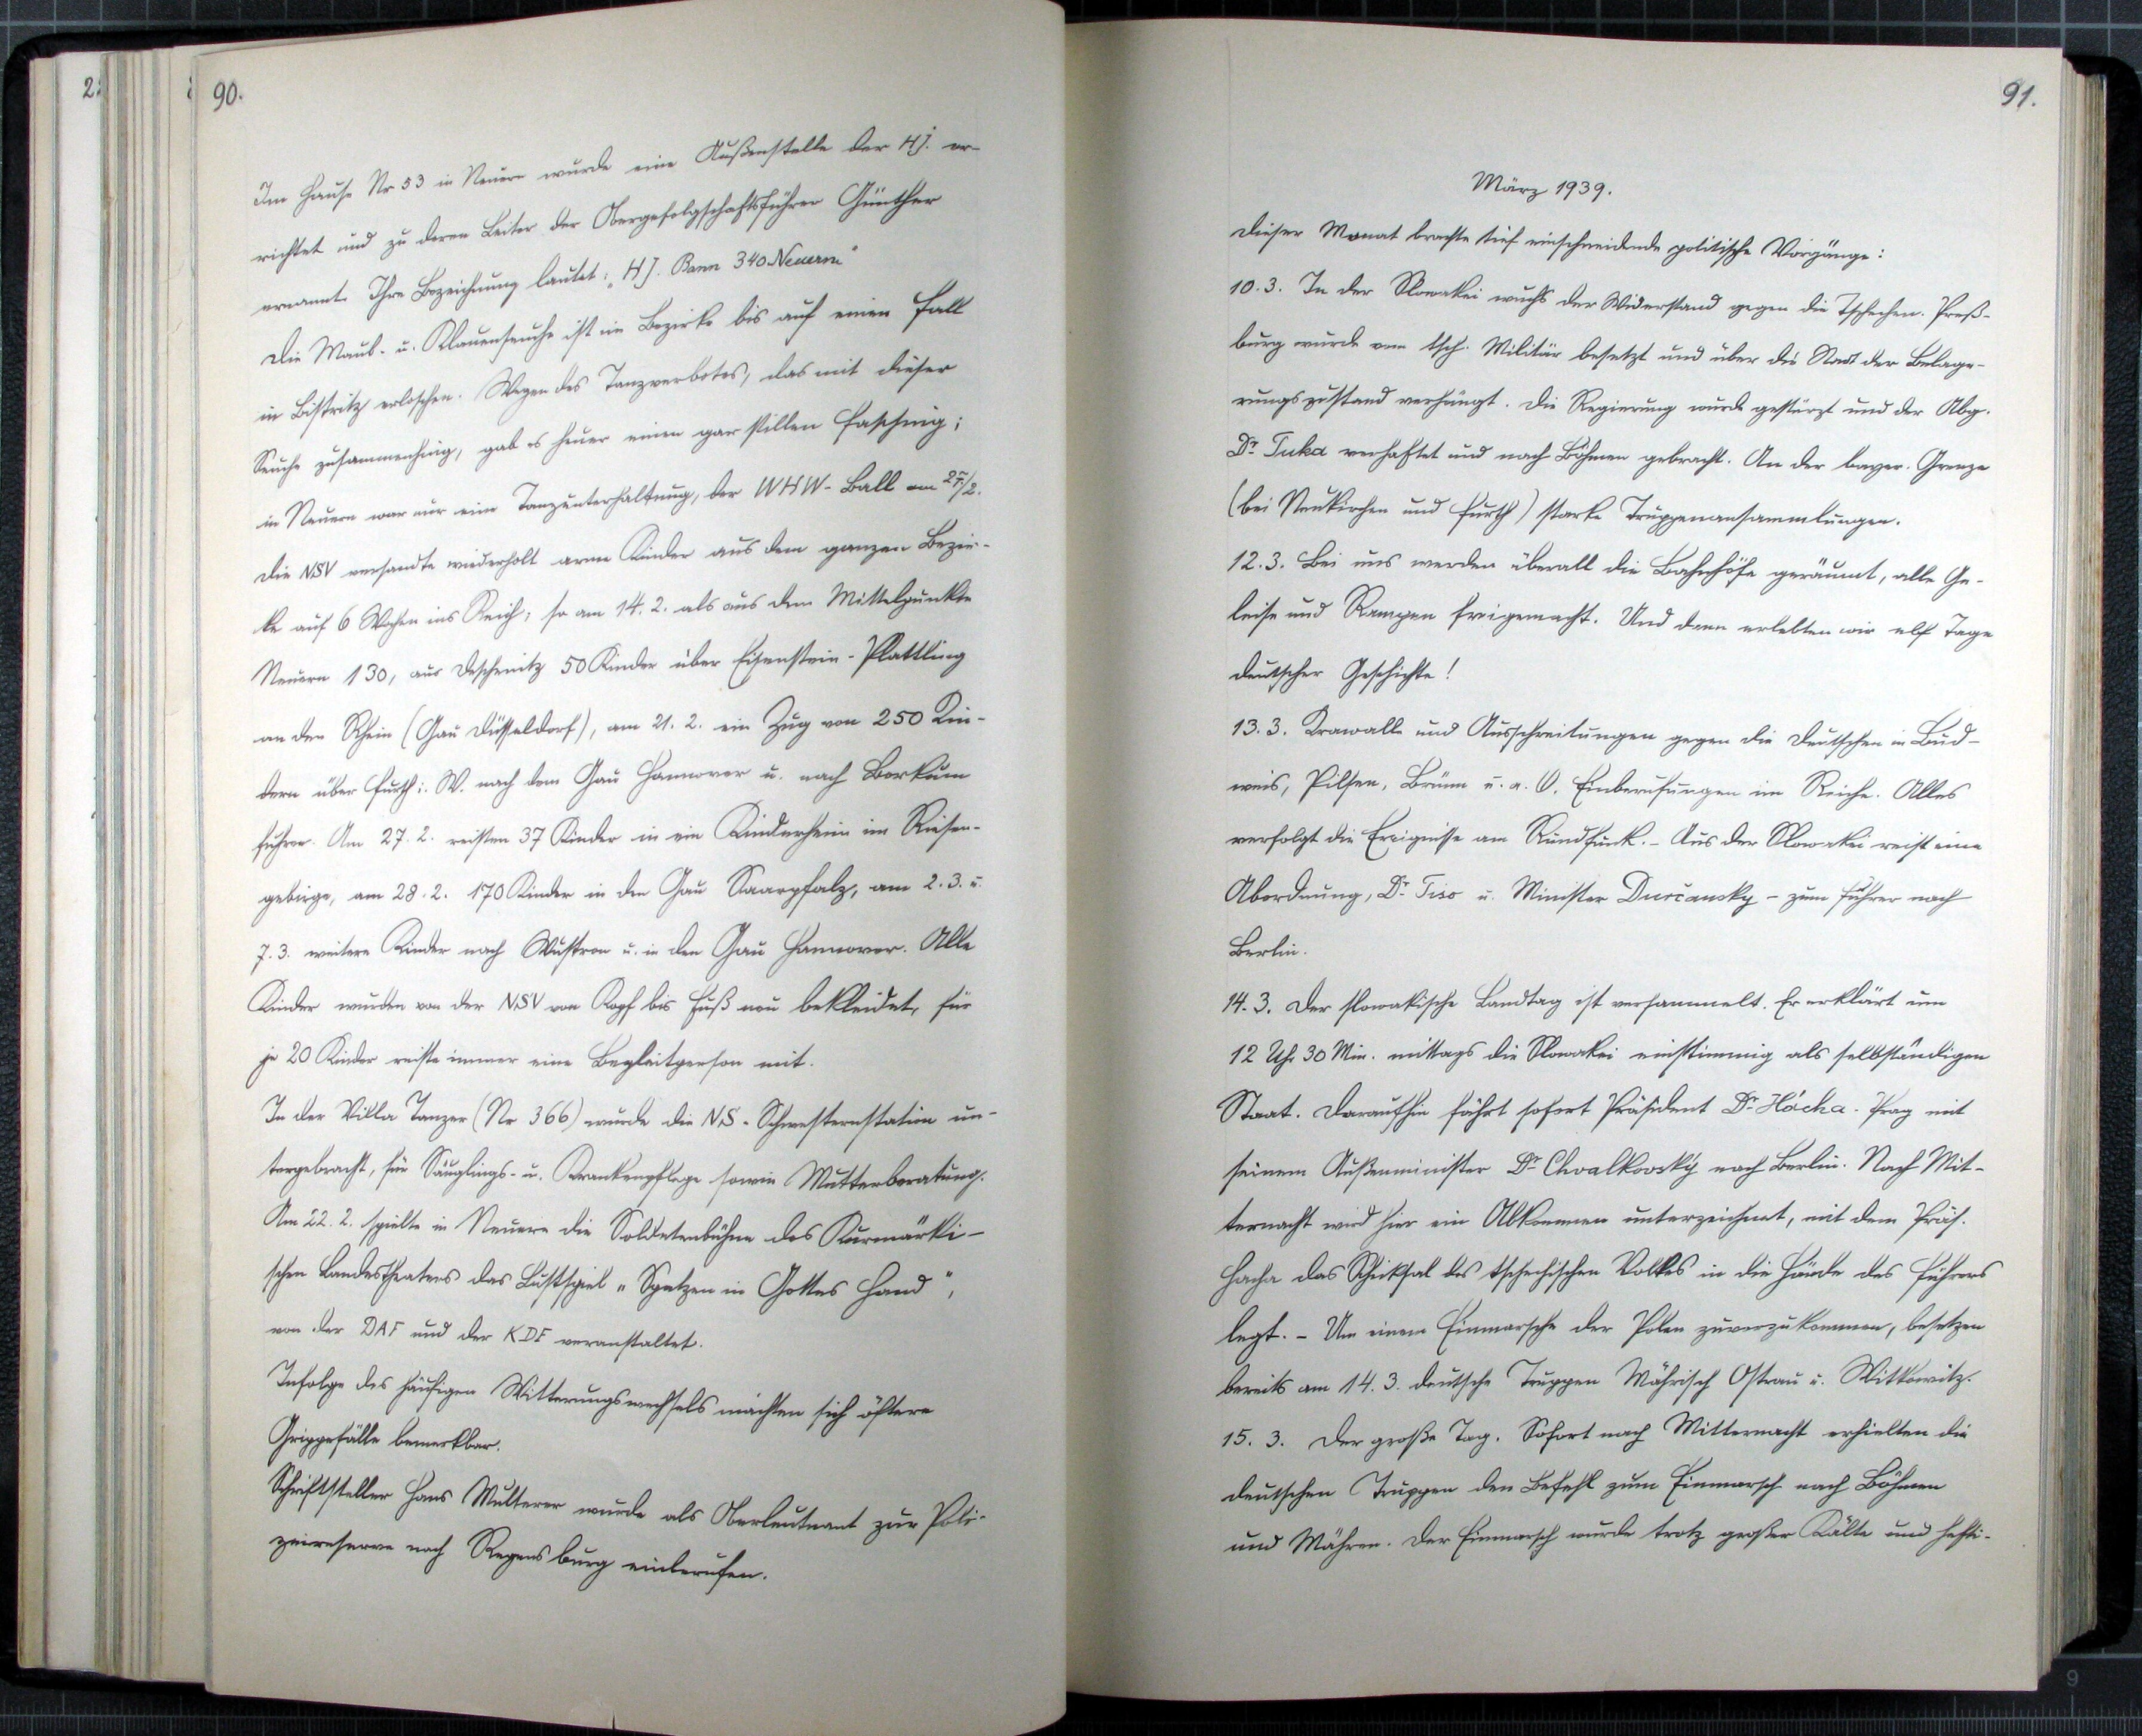 90.
Im Hause Nr 53 in Neuern wurde eine Außenstelle der HJ. er-
richtet und zu deren Leiter der Obergefolgschaftsführer Günther
ernannt. Ihre Bezeichnung lautet: „HJ. Bann 340 Neuern“
Die Maul- u. Klauenseuche ist im Bezirke bis auf einen Fall
in Bistritz erloschen. Wegen des Tanzverbotes, das mit dieser
Seuche zusammenhing, gab es heuer einen gar stillen Fasching;
in Neuern war nur eine Tanzunterhaltung, der WHW-Ball am 25/2.
Die NSV versandte wiederholt arme Kinder aus dem ganzen Bezir-
ke auf 6 Wochen ins Reich; so am 14. 2. als aus dem Mittelpunkte
Neuern 130, aus Deschenitz 50 Kinder über Eisenstein-Plattling
an den Rhein (Gau Düsseldorf), am 21. 2. ein Zug von 250 Kin-
dern über Furth i. W. nach dem Gau Hannover u. nach Borkum
fuhren. Am 27. 2. reisten 37 Kinder in ein Kinderheim im Riesen-
gebirge, am 28. 2. 170 Kinder in den Gau Saarpfalz, am 2. 3. u.
7. 3. weitere Kinder nach Wustrow u. in den Gau Hannover. Alle
Kinder wurden von der NSV von Kopf bis Fuß neu bekleidet, für
je 20 Kinder reiste immer eine Begleitperson mit.
In der Villa Tanzer (Nr 366) wurde die NS-Schwesternstation un-
tergebracht, für Säuglings- u. Krankenpflege sowie Mutterberatung.
Am 22. 2. spielte in Neuern die Soldatenbühne des Kurmärki-
schen Landestheaters das Lustspiel „Spatzen in Gottes Hand“,
von der DAF und der KDF veranstaltet.
Infolge des häufigen Witterungswechsels machten sich öftere
Grippefälle bemerkbar.
Schriftsteller Hans Multerer wurde als Oberleutnant zur Poli-
zeireserve nach Regensburg einberufen.
91.
März 1939.
Dieser Monat brachte tief einschneidende politische Vorgänge:
10. 3. In der Slowakei wuchs der Widerstand gegen die Tschechen. Preß-
burg wurde vom tsch. Militär besetzt und über die Stadt der Belage-
rungszustand verhängt. Die Regierung wurde gestürzt und der Abg.
Dr. Tuka verhaftet und nach Böhmen gebracht. An der bayer. Grenze
(bei Neukirchen und Furth) starke Truppenansammlungen.
12. 3. Bei uns werden überall die Bahnhöfe geräumt, alle Ge-
leise und Rampen freigemacht. Und dann erlebten wir elf Tage
deutscher Geschichte!
13. 3. Krawalle und Ausschreitungen gegen die Deutschen in Bud-
weis, Pilsen, Brünn u. a. O. Einberufungen im Reiche. Alles
verfolgt die Ereignisse am Rundfunk. – Aus der Slowakei reist eine
Abordnung, Dr. Tiso u. Minister Durčansky – zum Führer nach
Berlin.
14. 3. Der slowakische Landtag ist versammelt. Er erklärt um
12 Uhr 30 Min. mittags die Slowakei einstimmig als selbständigen
Staat. Daraufhin fährt sofort Präsident Dr. Hácha-Prag mit
seinem Außenminister Dr. Chvalkovský nach Berlin. Nach Mit-
ternacht wird hier ein Abkommen unterzeichnet, mit dem Präs.
Hacha das Schicksal des tschechischen Volkes in die Hände des Führers
legt. – Um einem Einmarsche der Polen zuvorzukommen, besetzen
bereits am 14. 3. deutsche Truppen Mährisch Ostrau u. Wittkowitz.
15. 3. Der große Tag. Sofort nach Mitternacht erhielten die
deutschen Truppen den Befehl zum Einmarsch nach Böhmen
und Mähren. Der Einmarsch wurde trotz großer Kälte und hefti-
9